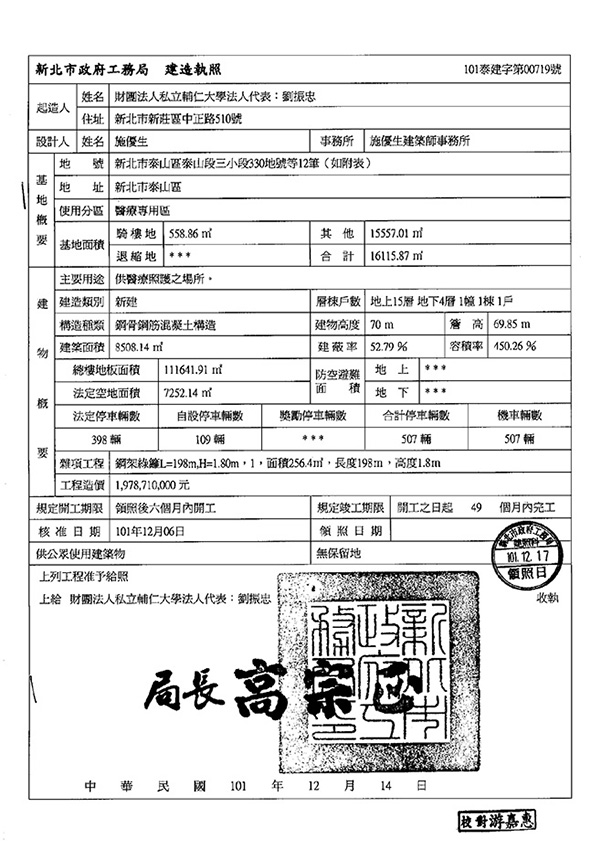 新北市政府工務局 建造執照 101泰建字第00719號
起造人 姓名 財團法人私立輔仁大學法人代表：劉振忠
住址 新北市新莊區中正路510號
設計人 姓名 施優生 事務所 施優生建築師事務所
基地概要
地號 新北市泰山區泰山段三小段330地號等12筆（如附表）
地址 新北市泰山區
使用分區 醫療專用區
基地面積 騎樓地 558.86 ㎡ 其他 15557.01 ㎡
退縮地 *** 合計 16115.87 ㎡
建物概要
主要用途 供醫療照護之場所。
建造類別 新建 層棟戶數 地上15層 地下4層 1幢 1棟 1戶
構造種類 鋼骨鋼筋混凝土構造 建物高度 70 m 簷高 69.85 m
建築面積 8508.14 ㎡ 建蔽率 52.79 % 容積率 450.26 %
總樓地板面積 111641.91 ㎡ 防空避難面積 地上 ***
法定空地面積 7252.14 ㎡ 地下 ***
法定停車輛數 自設停車輛數 獎勵停車輛數 合計停車輛數 機車輛數
398 輛 109 輛 *** 507 輛 507 輛
雜項工程 鋼架綠籬L=198m,H=1.80m，1，面積256.4㎡，長度198m，高度1.8m
工程造價 1,978,710,000 元
規定開工期限 領照後六個月內開工 規定竣工期限 開工之日起 49 個月內完工
核准日期 101年12月06日 領照日期
供公眾使用建築物 無保留地
新北市政府工務局
建照科
101.12.17
領照日
上列工程准予給照
上給 財團法人私立輔仁大學法人代表：劉振忠 收執
新北市政府工務局印
局長 高宗正
中華民國 101 年 12 月 14 日
校對游嘉惠